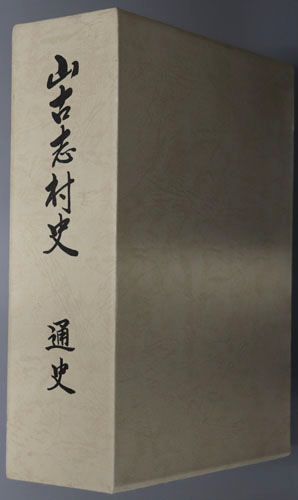 山古志村史
通史